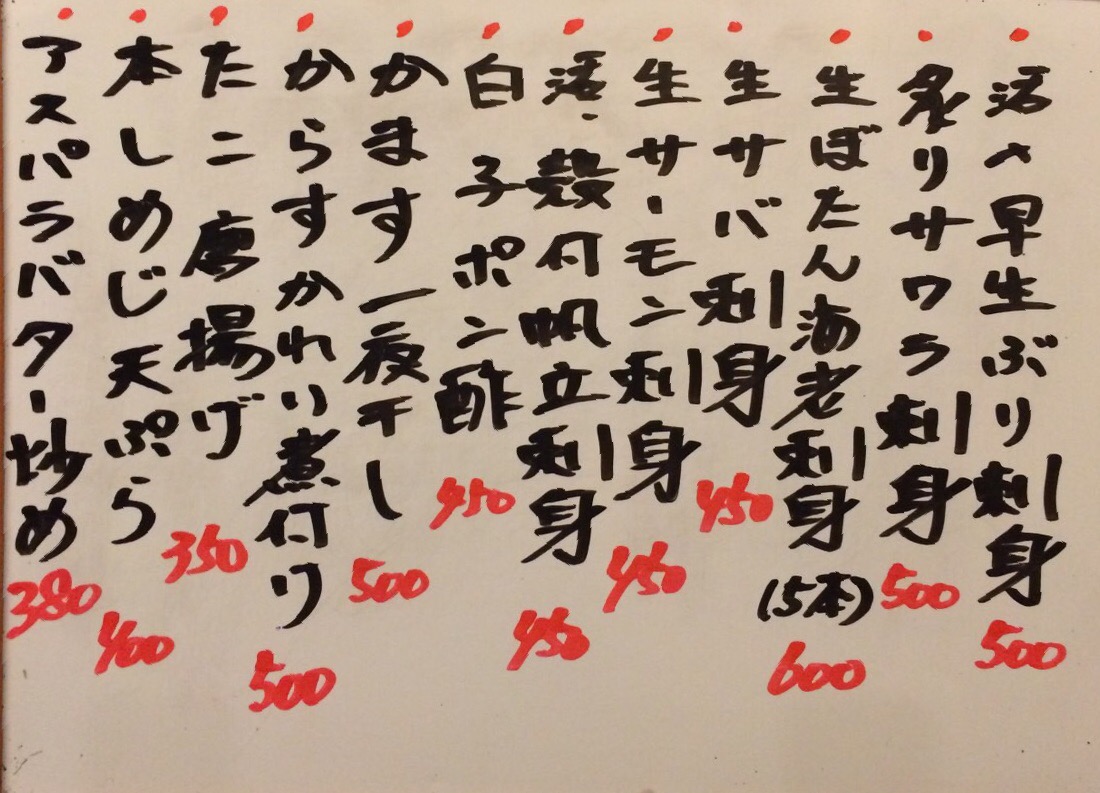 活〆早生ぶり刺身 500
炙りサワラ刺身 500
生ぼたん海老刺身(5本) 600
生サバ刺身 450
生サーモン刺身 450
活・殻付帆立刺身 450
白子ポン酢 450
かます一夜干し 500
からすかれい煮付け 500
たこ唐揚げ 350
本しめじ天ぷら 400
アスパラバター炒め 380